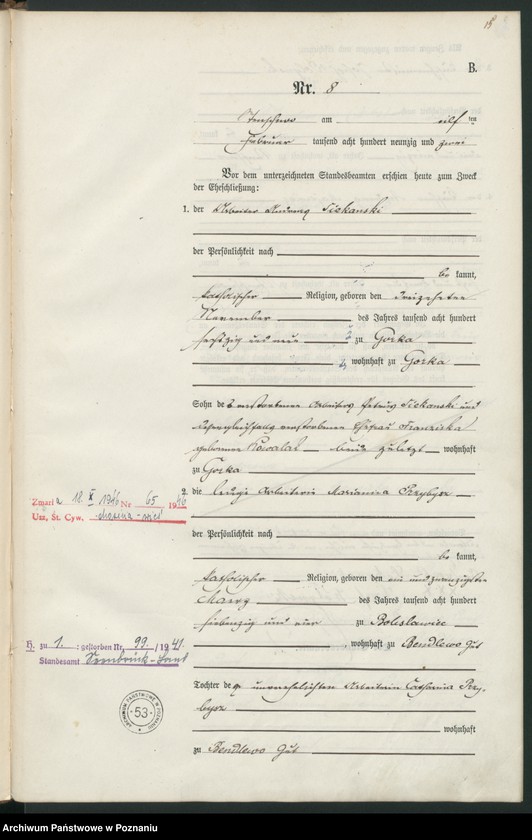 B.
Nr. 8
am eilften
Februar tausend acht hundert neunzig und zwei
Vor dem unterzeichneten Standesbeamten erschien heute zum Zweck
der Eheschließung:
1. der Arbeiter
der Persönlichkeit nach
be kannt,
katholischer Religion, geboren den dreizehnten
November des Jahres tausend acht hundert
sechszig und neun zu Gorka
wohnhaft zu Gorka
Sohn des verstorbenen Arbeiters und
verstorbenen Ehefrau Franziska
geborenen Kowalak beide zuletzt wohnhaft
zu Gorka
2. die ledige Arbeiterin Marianna Przybysz
Zmarła 18. X 1946 Nr 65 1946
Urz. St. Cyw.
der Persönlichkeit nach
be kannt,
katholischer Religion, geboren den ein und zwanzigsten
März des Jahres tausend acht hundert
siebenzig und vier zu Boleslawiec
wohnhaft zu Bendlewo Gut
H. zu 1. : gestorben Nr. 99 / 1941.
Standesamt
Tochter der unverehelichten Arbeiterin Catharina Przy-
bysz
wohnhaft
zu Bendlewo Gut
ARCHIWUM PAŃSTWOWE W POZNANIU
53
Archiwum Państwowe w Poznaniu